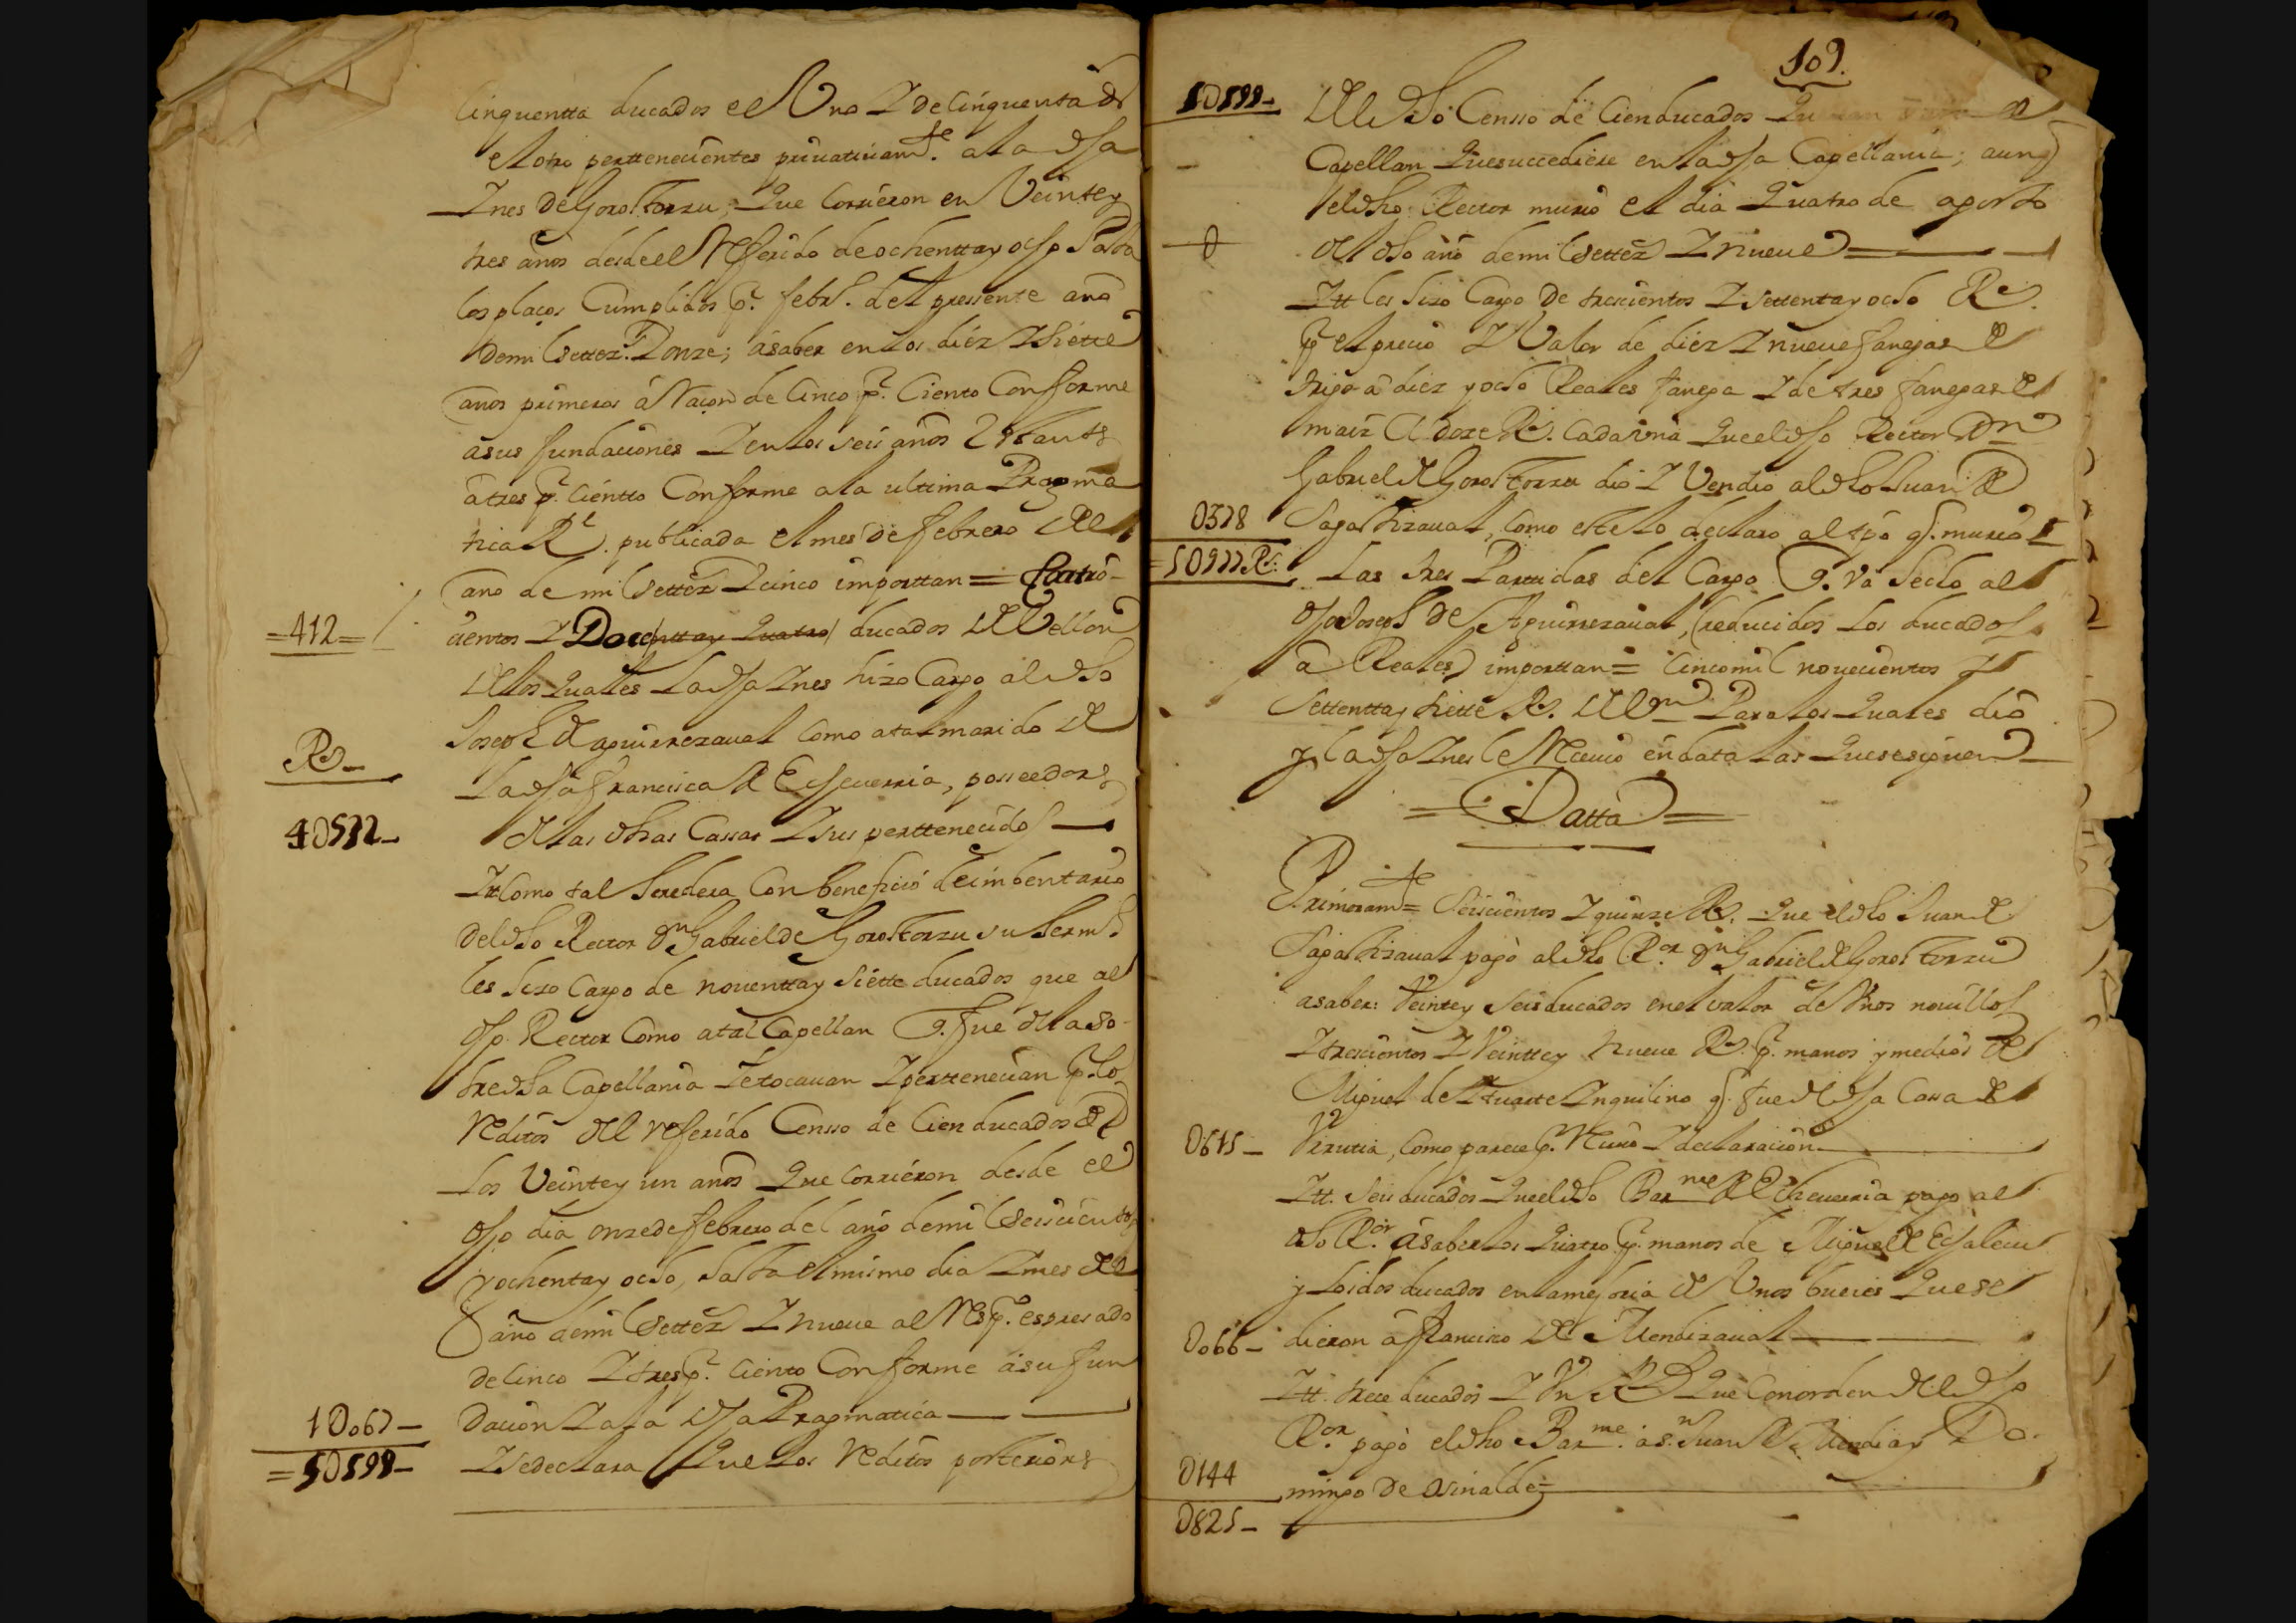 Cinquentta ducados el Uno Y de Cinquenta ds
el otro perttenecientes priuatiuamte. a la dha
Ynes de Gorostorzu, Que Corrieron en Veinte y
tres años desde el Referido de ochentta y ocho hasta
los plaços Cumplidos pr. febro. del pressente año
de mil settez. Y onze; a saber en los diez Y siette
años primeros à Raçon de Cinco pr. Ciento Conforme
a sus fundaciones Y en los seis años
à tres pr. Cientto Conforme a la ultima Pragma
tica Rl. publicada el mes de febrero del
año de mil settez. Y cinco importtan = quatro
cientos Y Doce ducados de Vellon
de los quales La dha Ynes hizo Cargo al dho
Joseph de aguirrezaual Como a tal marido de
La dha francisca de Echeuerria, posseedora
de las dhas Cassas Y sus perttenecidos
=412=
Rs
4U532
Ytt Como tal heredera Con beneficio de inbentario
del dho Rector Dn Gabriel de Gorostorzu su hermo.
les hizo Cargo de nouentta y siette ducados que al
dho Rector Como a tal Capellan q. fue de la so
bredha Capellania le tocauan Y perttenecian pr. lo
Reditos del referido Censso de Cien ducados de
Los Veinte y un años Que Corrieron desde el
dho dia onze de febrero del año de mil seiscientos
y ochenta y ocho, hasta el mismo dia Y mes del
año de mil settez. Y nueue al Resp. espresado
de Cinco Y tres pr. Ciento Conforme a su fun
dacion Y a la dha Pragmatica
1U067
=5U599
Y se declara Que Los Reditos posteriores
109.
5U599
del dho Censso de Cien ducados
Capellan Que succediere en la dha Capellania; aunq
el dho Rector murio el dia Quatro de agosto
del dho año de mil settez Y nueue =
Ytt les hizo Cargo de trescientos Y settenta y ocho Rs.
pr el precio Y Valor de diez Y nueue fanegas de
trigo a diez y ocho Reales fanega Y de tres fanegas de
maiz a doze Rs. Cada Vna Que el dho Rector Dn
Gabriel de Gorostorzu dio Y Vendio al dho Juan de
Sagastizaual, Como este lo declaro al tpo q. murio
0378
=5U977 Rs.
Las tres Partidas del Cargo q. va hecho al
dho Joseph de Aguirrezaual, (reducidos Los ducados
a Reales) importtan = Cinco mil nouecientos Y
settentta y siette Rs. de Vn Para los Quales dio
y la dha Ynes le Receuio en data las Que se siguen
= Datta =
Primeramte = Seiscientos Y quinze Rs. Que el dho Juan de
Sagastizaual pagò al dho Ror. Dn Gabriel de Gorostorzu
a saber: Veinte y seis ducados en el valor de Vnos nouillos
Y trescientos Y Veintte y nueue Rs. pr. manos y medio de
Miguel de Ytuarte Ynquilino q. fue de dha Cassa de
Vrrutia, Como parece pr. Reciuo Y declaracion
0615
Ytt. Seis ducados Que el dho Barme de Echeuerria pago al
dho Ror. a saber Los quatro pr. manos de Miguel de Echalecu
y Los dos ducados en la mejoria de Vnos bueies Que se
dieron a francisco de Mendizaual
0066
Ytt. trece ducados Y Vn Rl Que Con orden del dho
Ror. pagò el dho Barme. a Sn. Juan de Mendia y Do
mingo de asinalde =
0144
0825